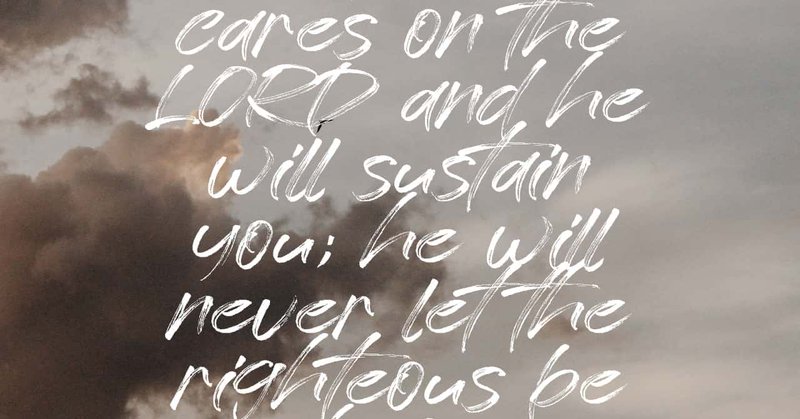 cares on the
LORD and he
will sustain
you; he will
never let the
righteous be